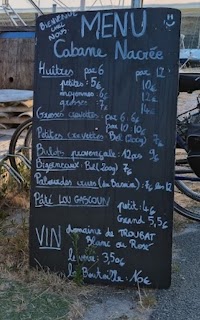 BIENVENUE
CHEZ
NOUS
MENU
Cabane Nacrée
Huîtres par 6 par 12
petites : 5€ 10€
moyennes : 6€ 12€
grosses : 7€ 14€
Grosses crevettes par 6 : 6€
Petites crevettes Bol (200g) 7€
Bulots provençale 12 pars 9€
Bigorneaux Bol (200g) 7€
Palourdes crues (du Bassin) : 7€ les 12
Pâté LOU GASCOUN petit : 4€
Grand 5,5€
VIN domaine de TROUBAT
Blanc ou Rosé
le verre : 3,50€
la Bouteille : 16€